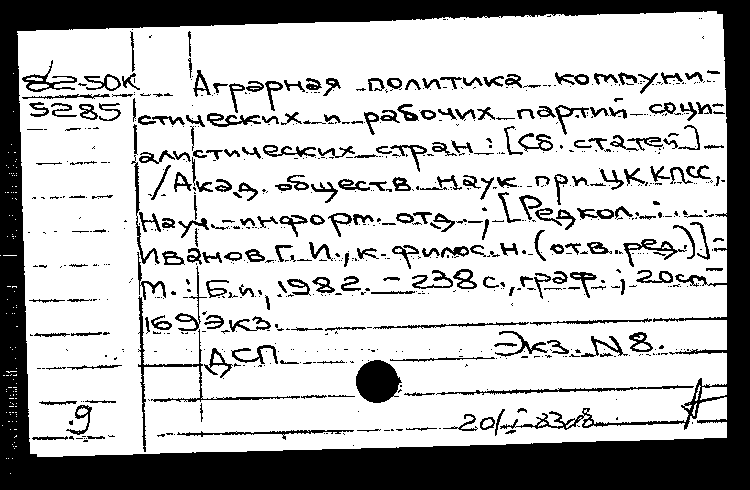 82-50К Аграрная политика коммуни-
5285 стических и рабочих партий соци-
алистических стран : [Сб. статей]
/Акад. обществ. наук при ЦК КПСС,
Науч.-информ. отд. ; [Редкол. : ...
Иванов Г. И., к. филос. н. (отв. ред.)] -
М. : Б. и., 1982. - 238 с., граф. ; 20 см -
169 Экз.
ДСП. Экз. N 8.
9 20/I-83
А